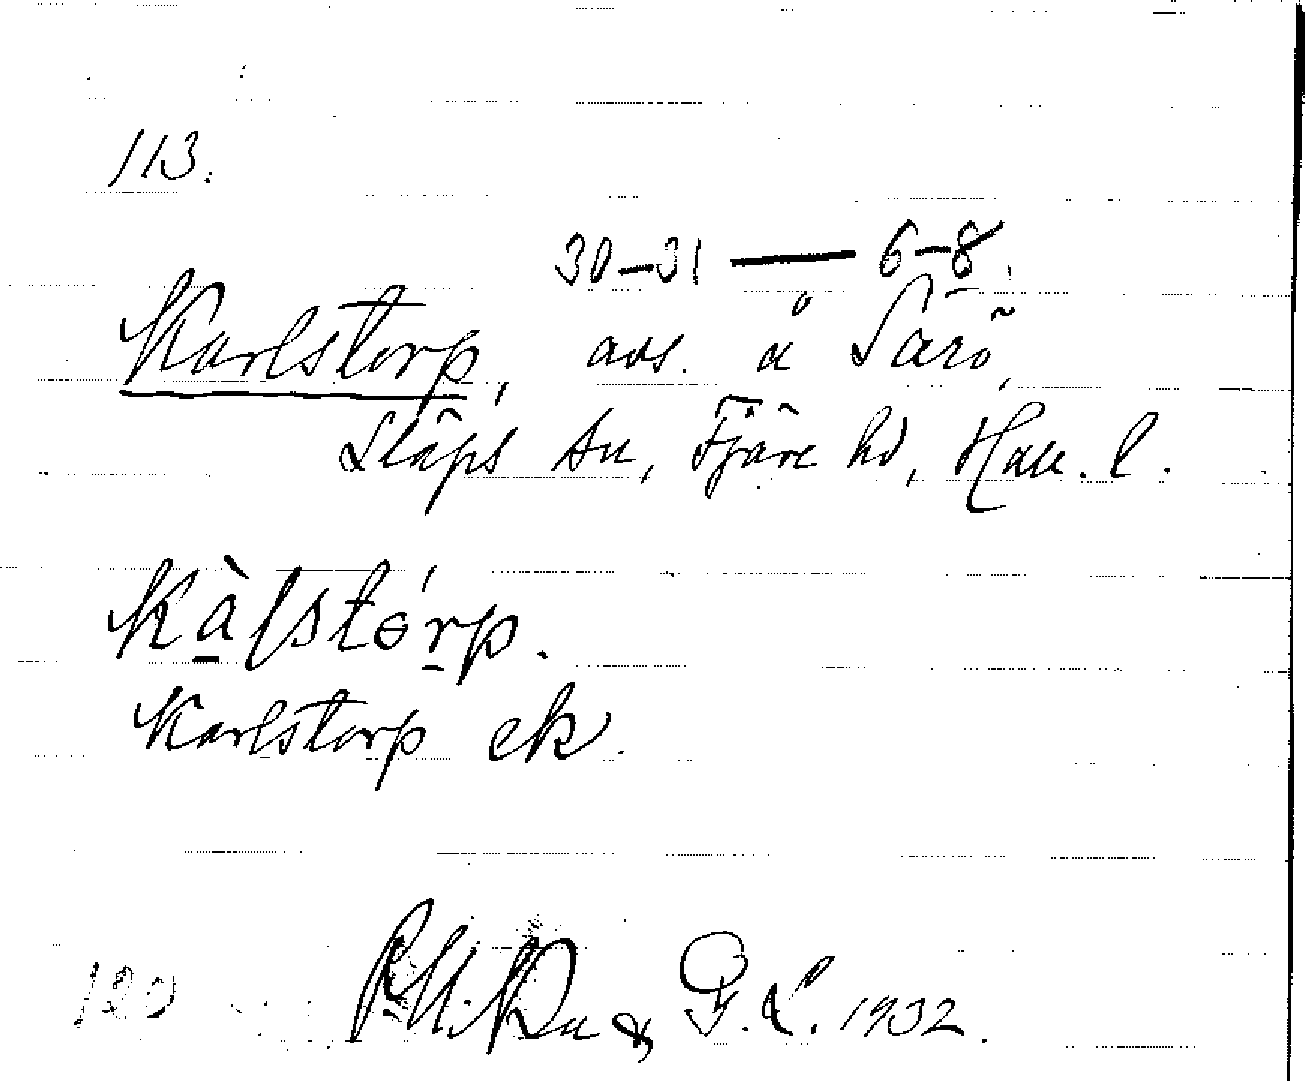 113.
30–31 — 6–8.
Karlstorp, avs. å Särö,
Släps sn, Fjäre hd, Hall. l.
Kàlstórp.
Karlstorp ek.
120
& G. L. 1932.